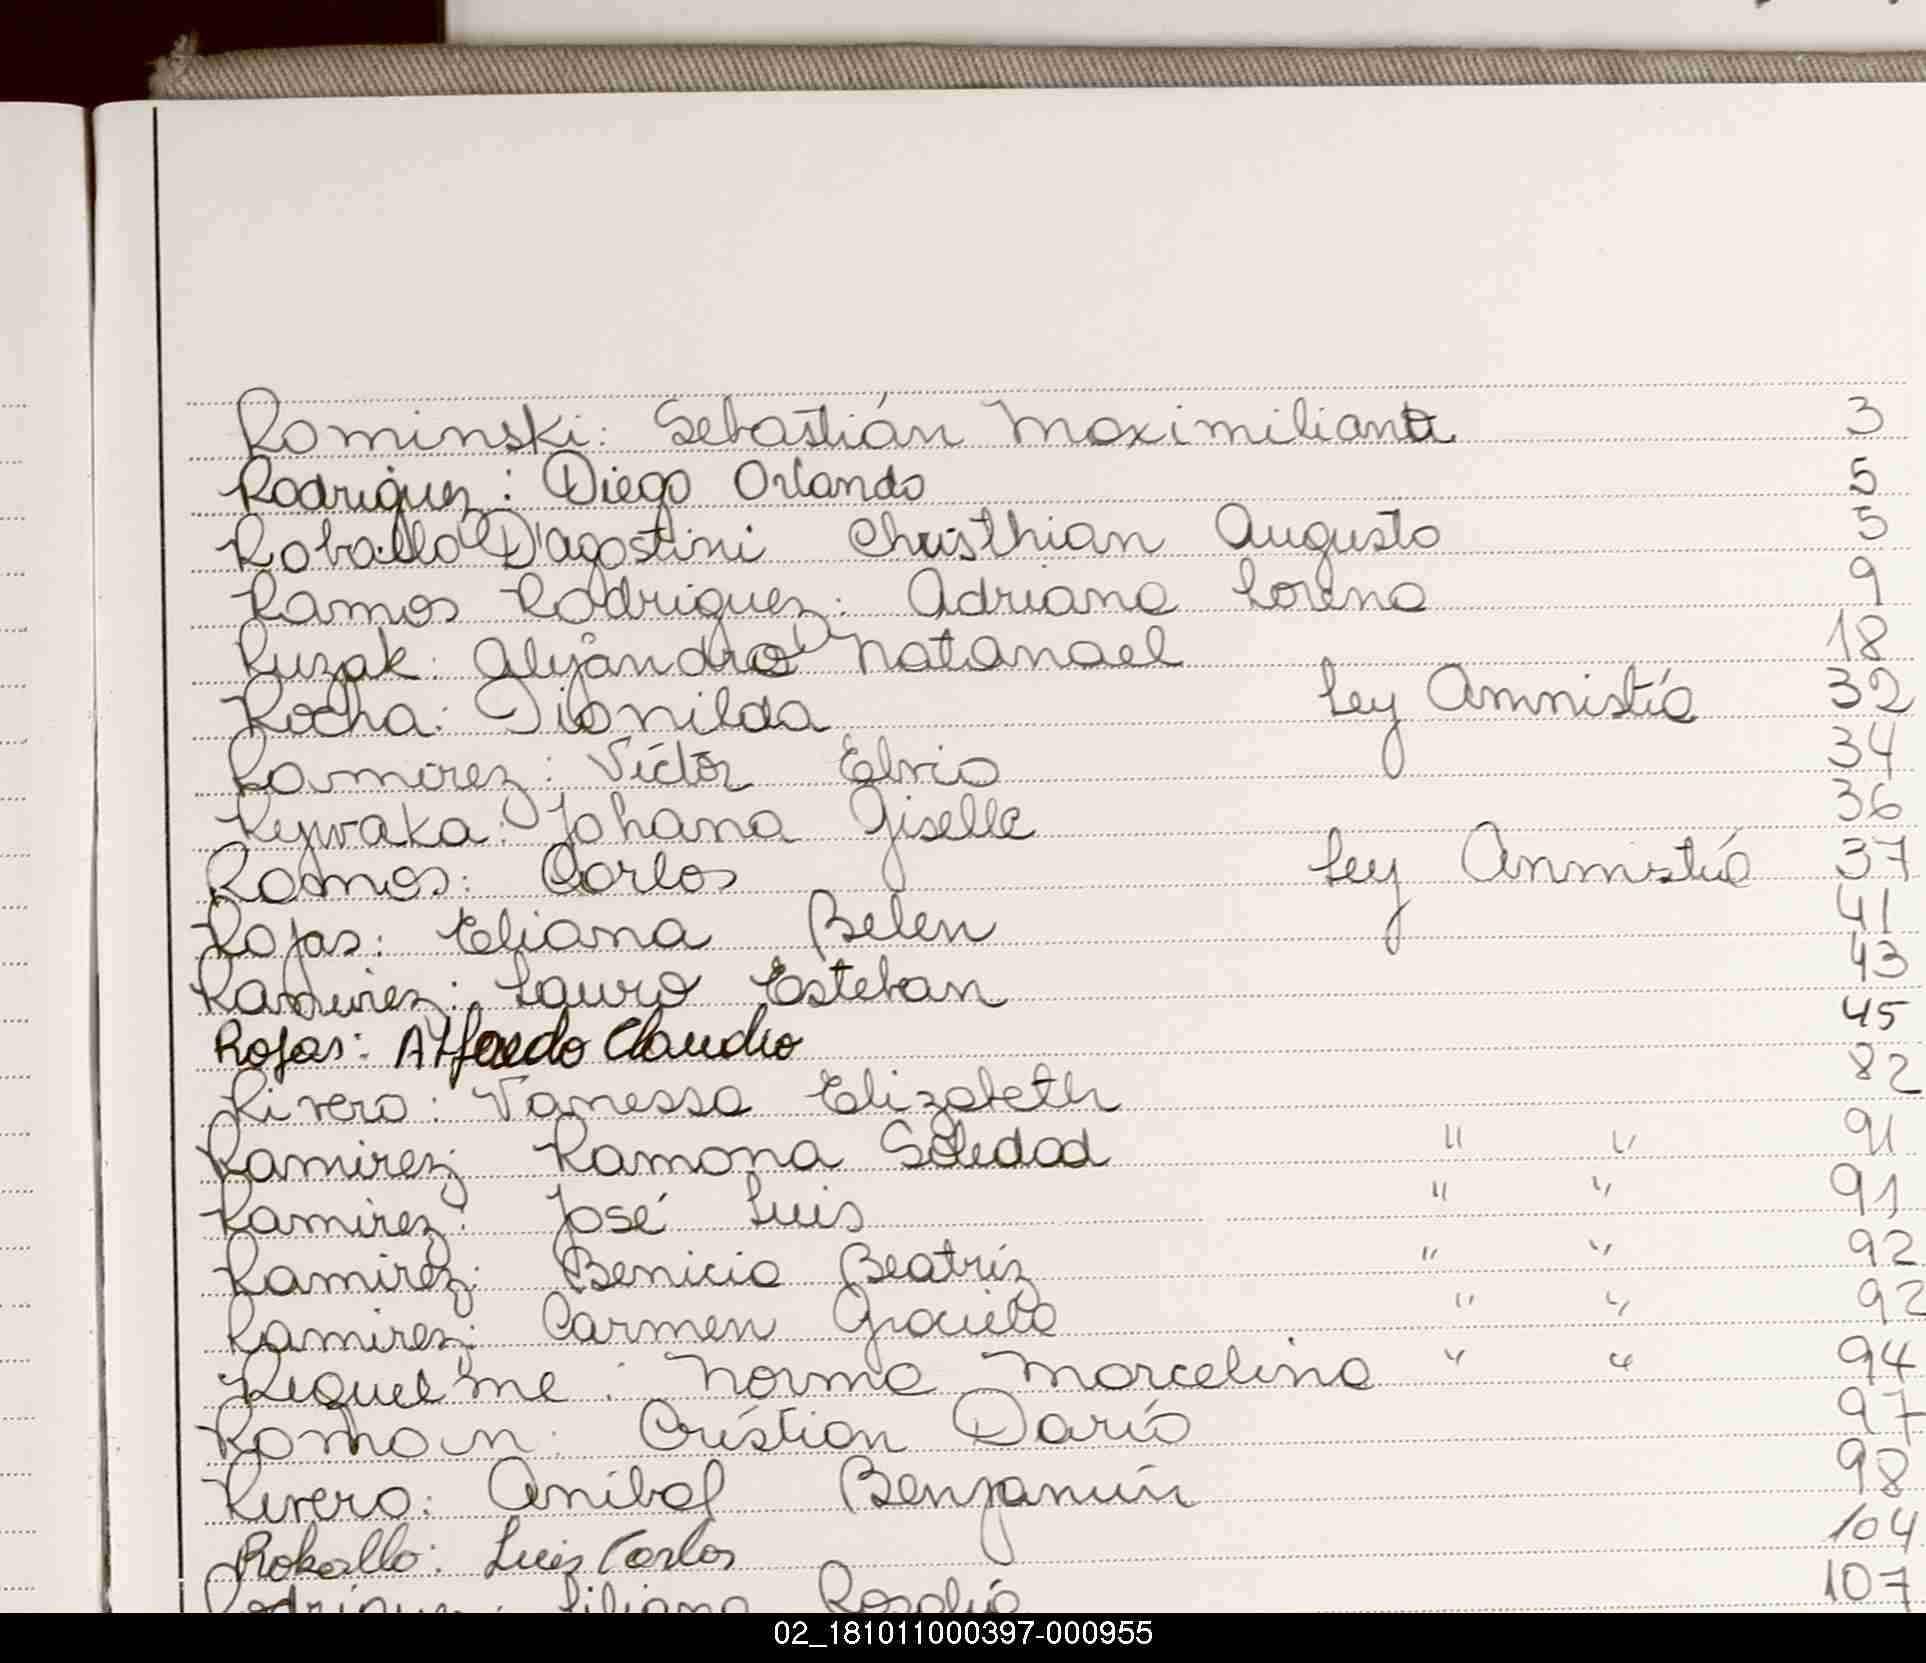 Rominski: Sebastián Maximiliano 3
Rodriguez: Diego Orlando 5
Roballo D'agostini Christhian Augusto 5
Ramos Rodriguez: Adriana Lorena 9
Ruzak: Alejandro Natanael 18
Rocha: Dionilda Ley Amnistía 32
Ramirez: Víctor Elvio 34
Rywaka: Johana Giselle 36
Ramos: Carlos Ley Anmistía 37
Rojas: Eliana Belen 41
Ramirez: Lauro Esteban 43
Rojas: Alfredo Claudio 45
Rivero: Vanessa Elizabeth 82
Ramirez: Ramona Soledad " " 91
Ramirez: José Luis " " 91
Ramirez: Benicia Beatríz " " 92
Ramirez: Carmen Graciela " " 92
Riquelme: Norma Marcelina " " 94
Roman: Cristian Darío 97
Rivero: Anibal Benjamín 98
Roballo: Luis Carlos 104
Rodriguez: Liliana Rosalía 107
02_181011000397-000955